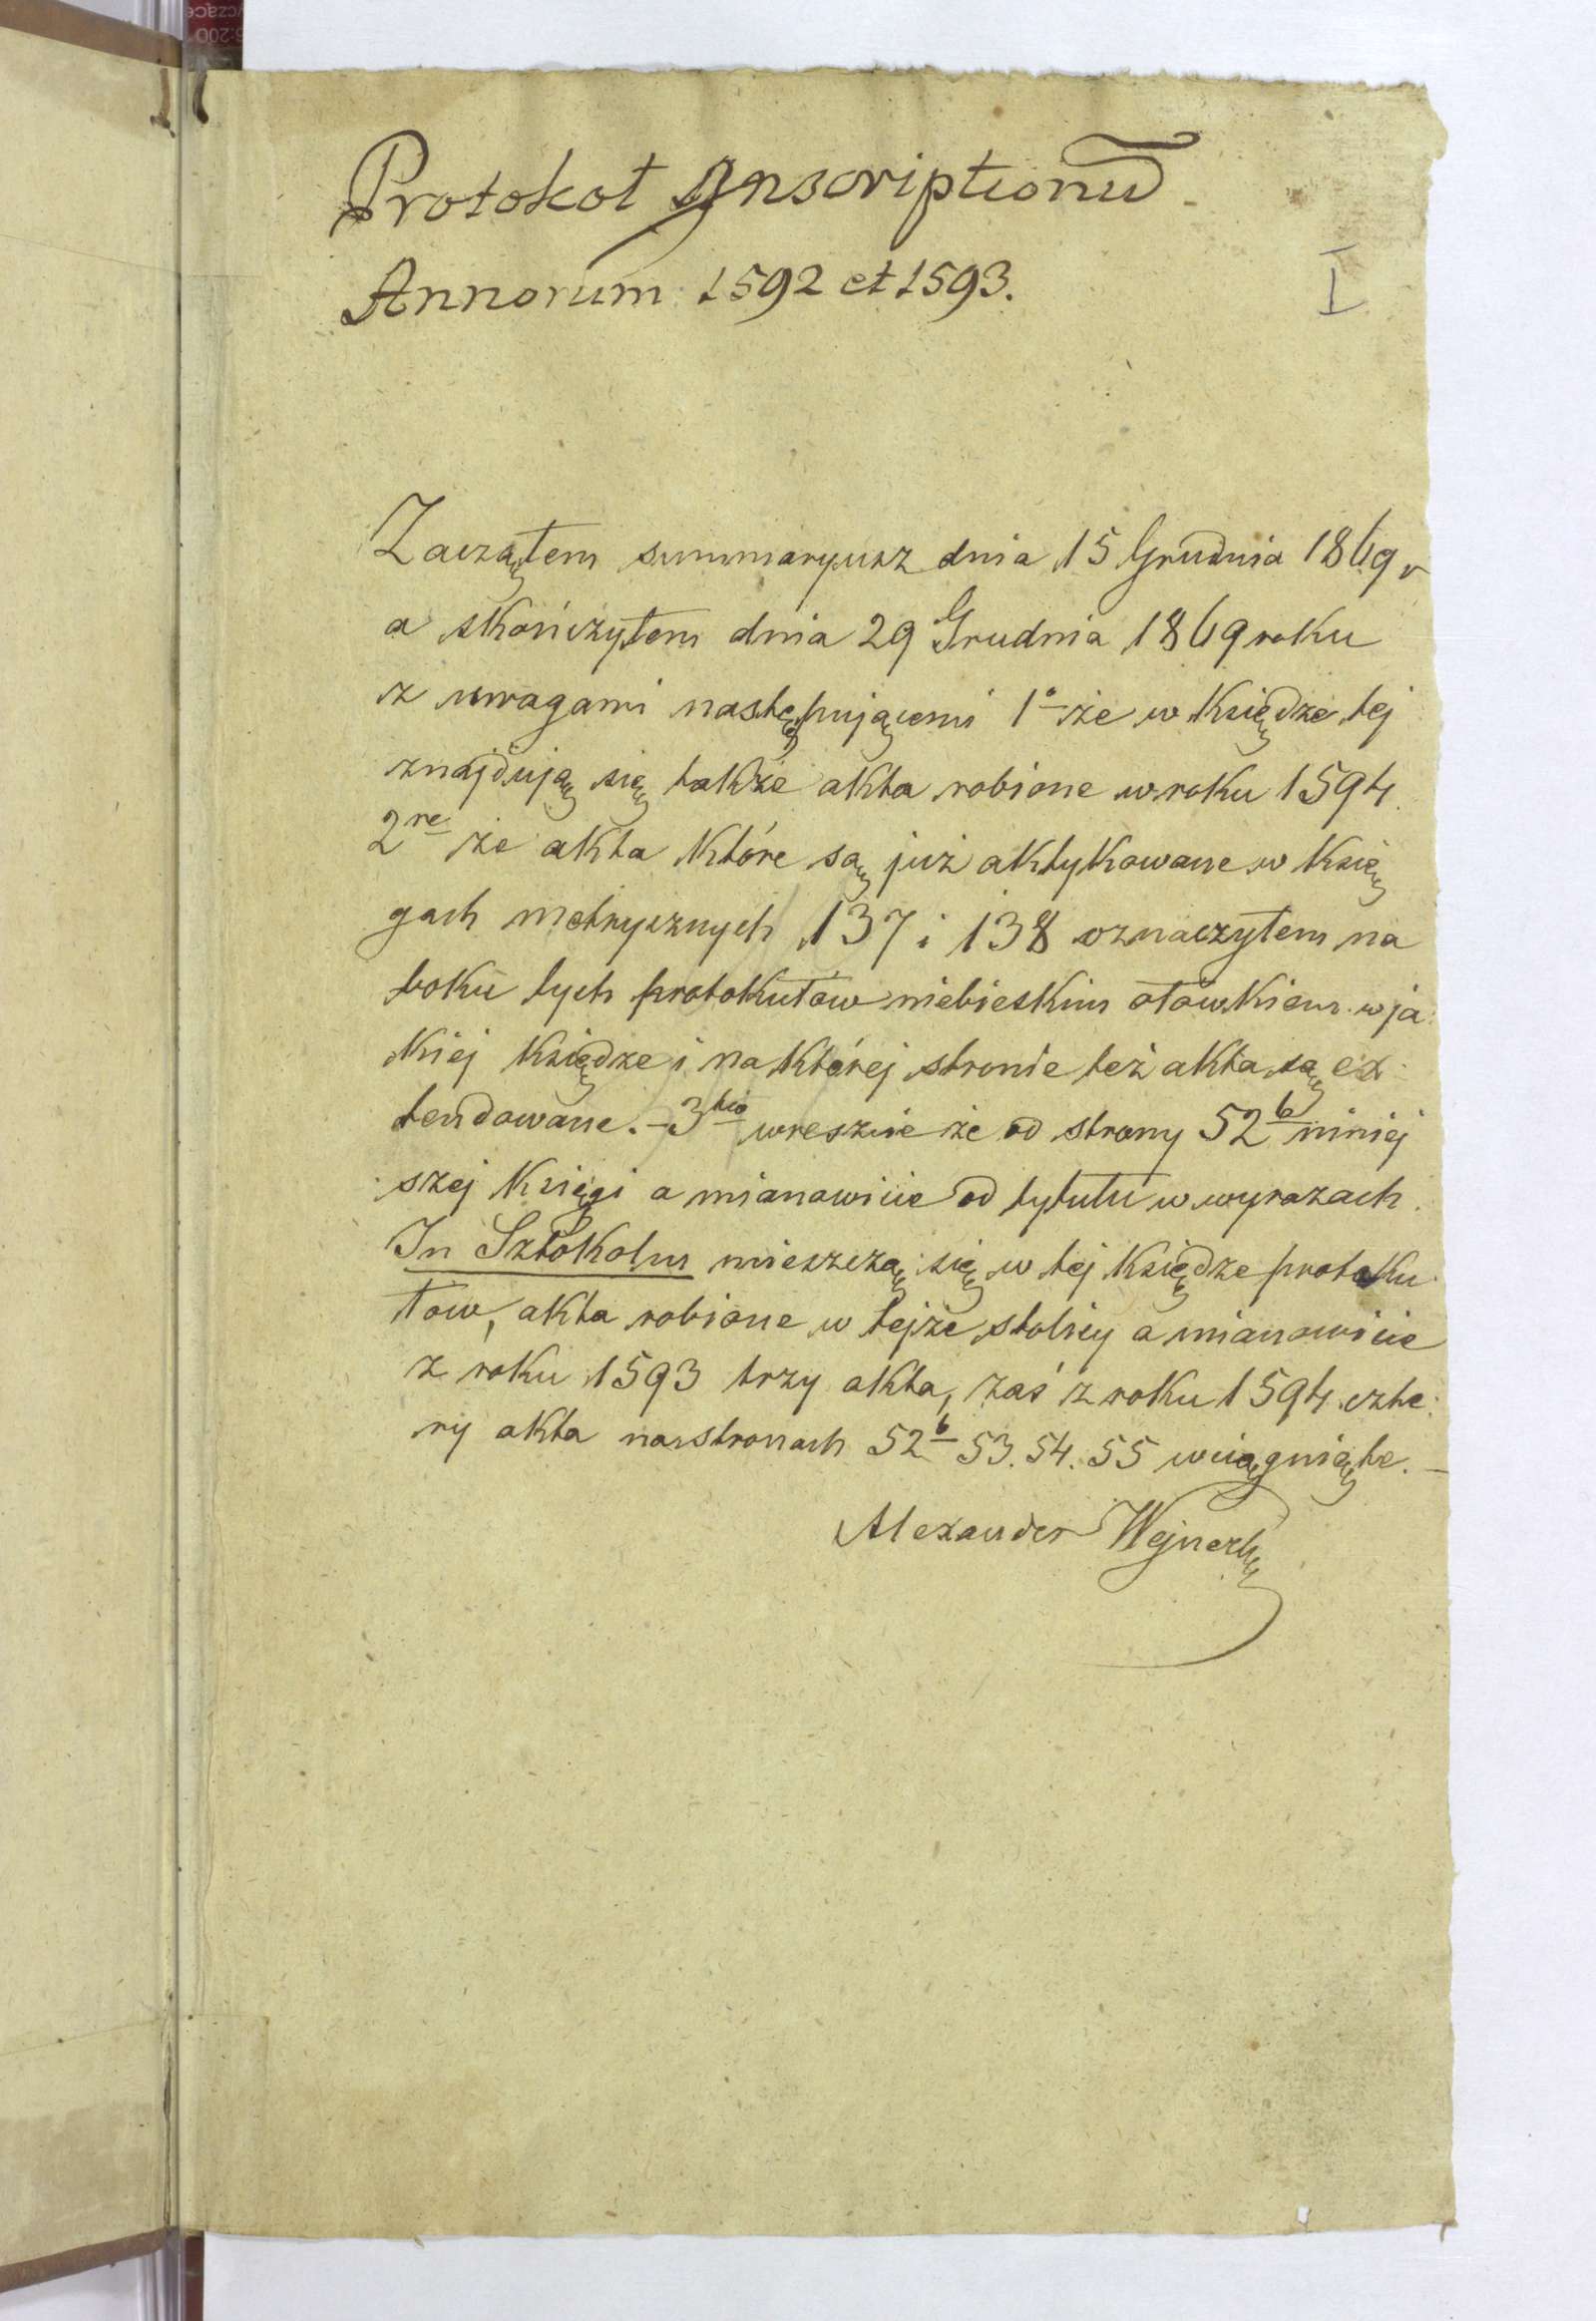 Protokoł Inscriptionū
Annorum 1592 et 1593.
I
Zacząłem summaryusz dnia 15 Grudnia 1869 r
a skończyłem dnia 29 Grudnia 1869 roku
z uwagami następującemi 1º że w Księdze tej
znajdują się także akta robione w roku 1594.
2re że akta które są już aktykowane w Księ
gach metrycznych 137 i 138 oznaczyłem na
boku tych protokułów niebieskim ołówkiem w ja:
kiej Księdze i na której stronie też akta są ex:
tendowane. – 3tio wreszcie że od strony 52b niniej
szej Księgi a mianowicie od tytułu w wyrazach.
In Sztokolm mieszczą się w tej Księdze protoku:
łów, akta robione w tejże stolicy a mianowicie
z roku 1593 trzy akta, zaś z roku 1594 czte:
ry akta na stronach 52b 53. 54. 55 wciągnięte. –
Alexander Wejnert